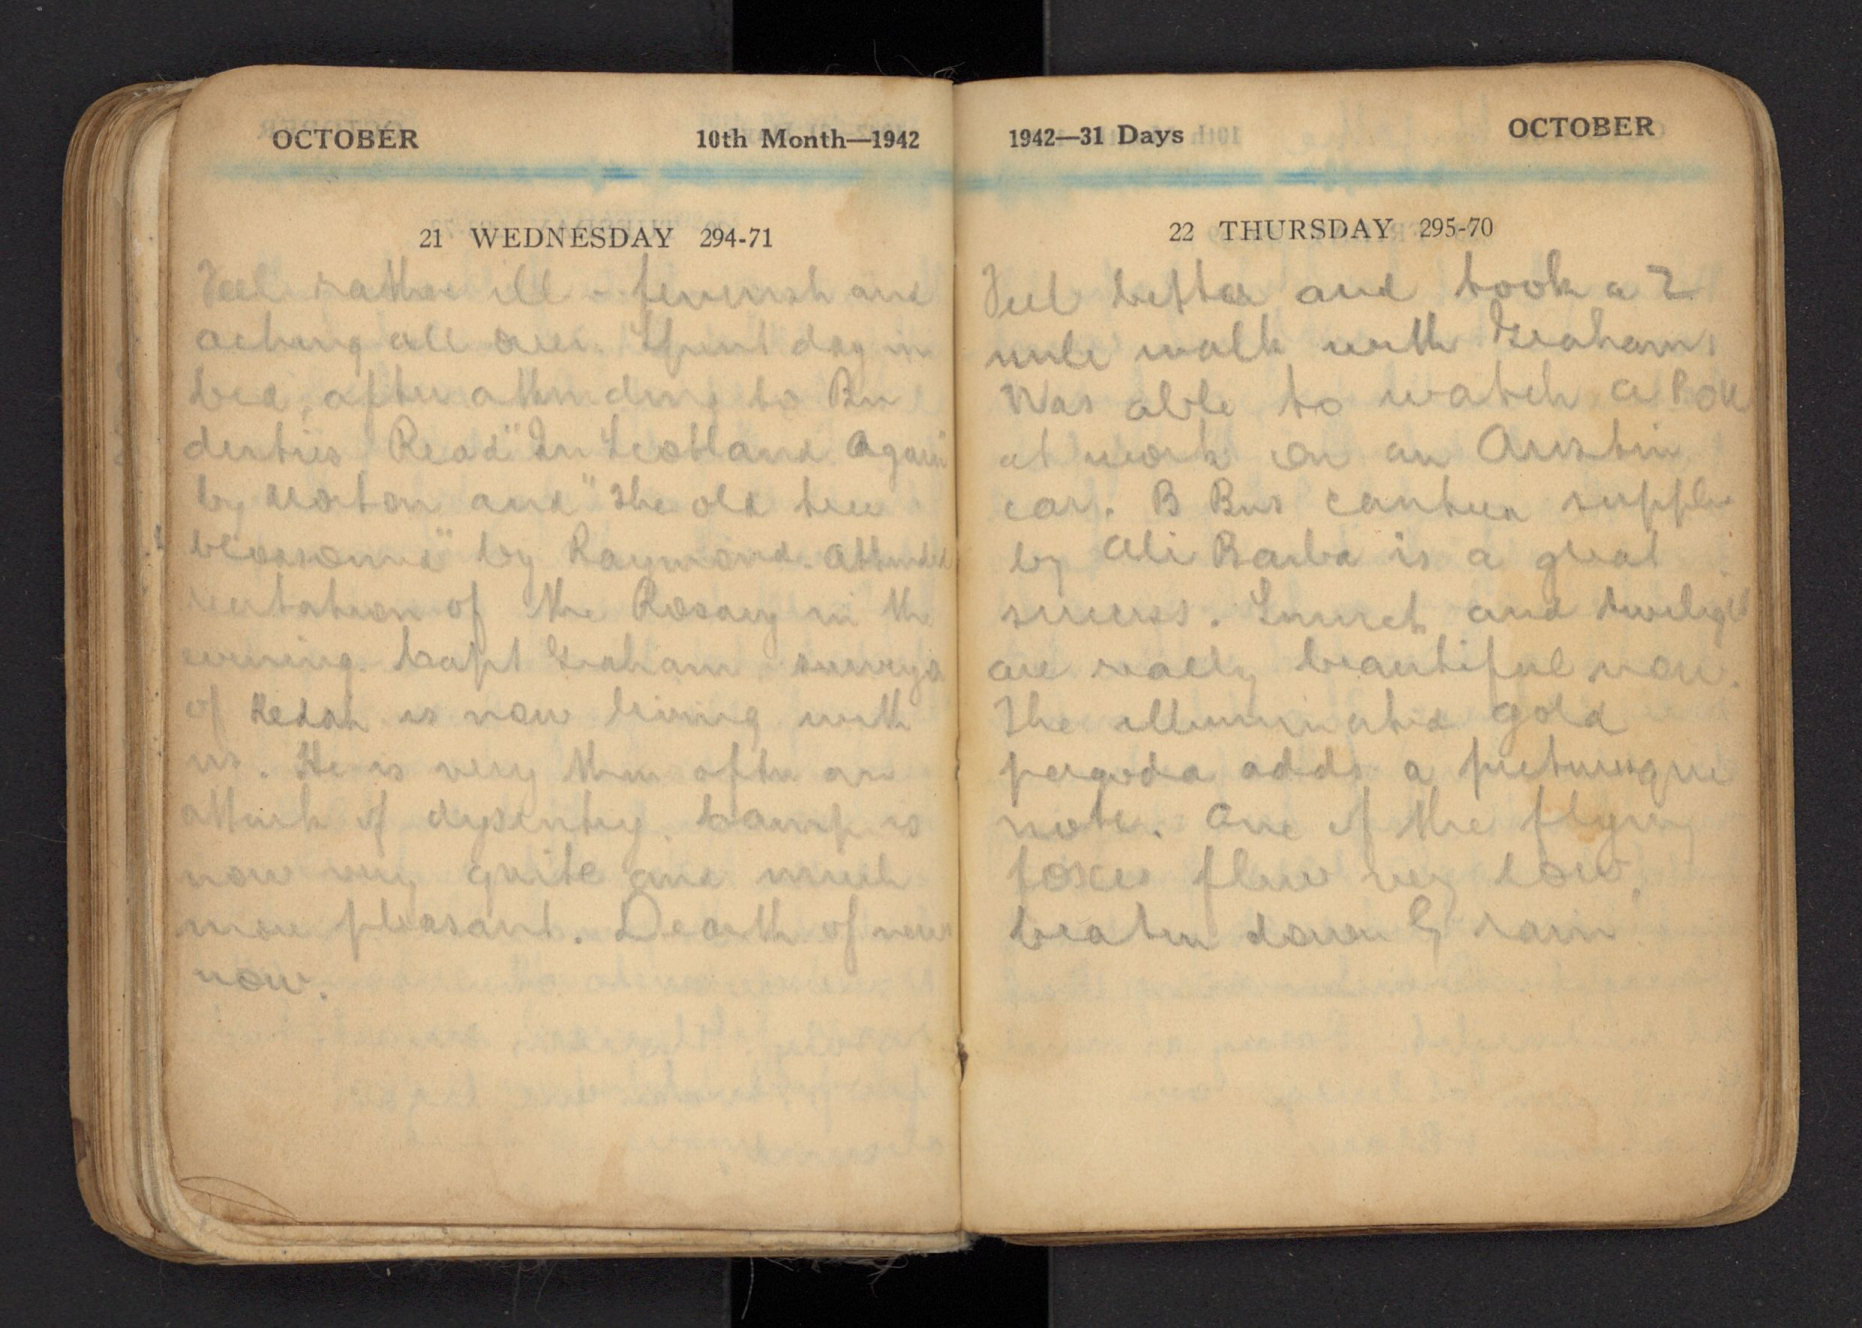 OCTOBER 10th Month—1942
21 WEDNESDAY 294-71
Feel rather ill - feverish and
aching all over. Spent day in
bed, after attending to Bn
duties. Read "In Scotland Again"
by Morton and "The old tree
blossoms" by Raymond. Attended
recitation of the Rosary in the
evening. Capt Graham - surveys
of Kedah is now living with
us. He is very thin after an
attack of dysentry. Camp is
now very quite and much
more pleasant. Dearth of news
now.
1942—31 Days OCTOBER
22 THURSDAY 295-70
Feel better and took a 2
mile walk with Graham.
Was able to watch a POW
at work on an Austin
car. B Bns canteen supplied
by Ali Barba is a great
success. Sunset and twilight
are really beautiful now.
The illuminated gold
pagoda adds a picturesque
note. One of the flying
foxes flew very low,
beaten down by rain